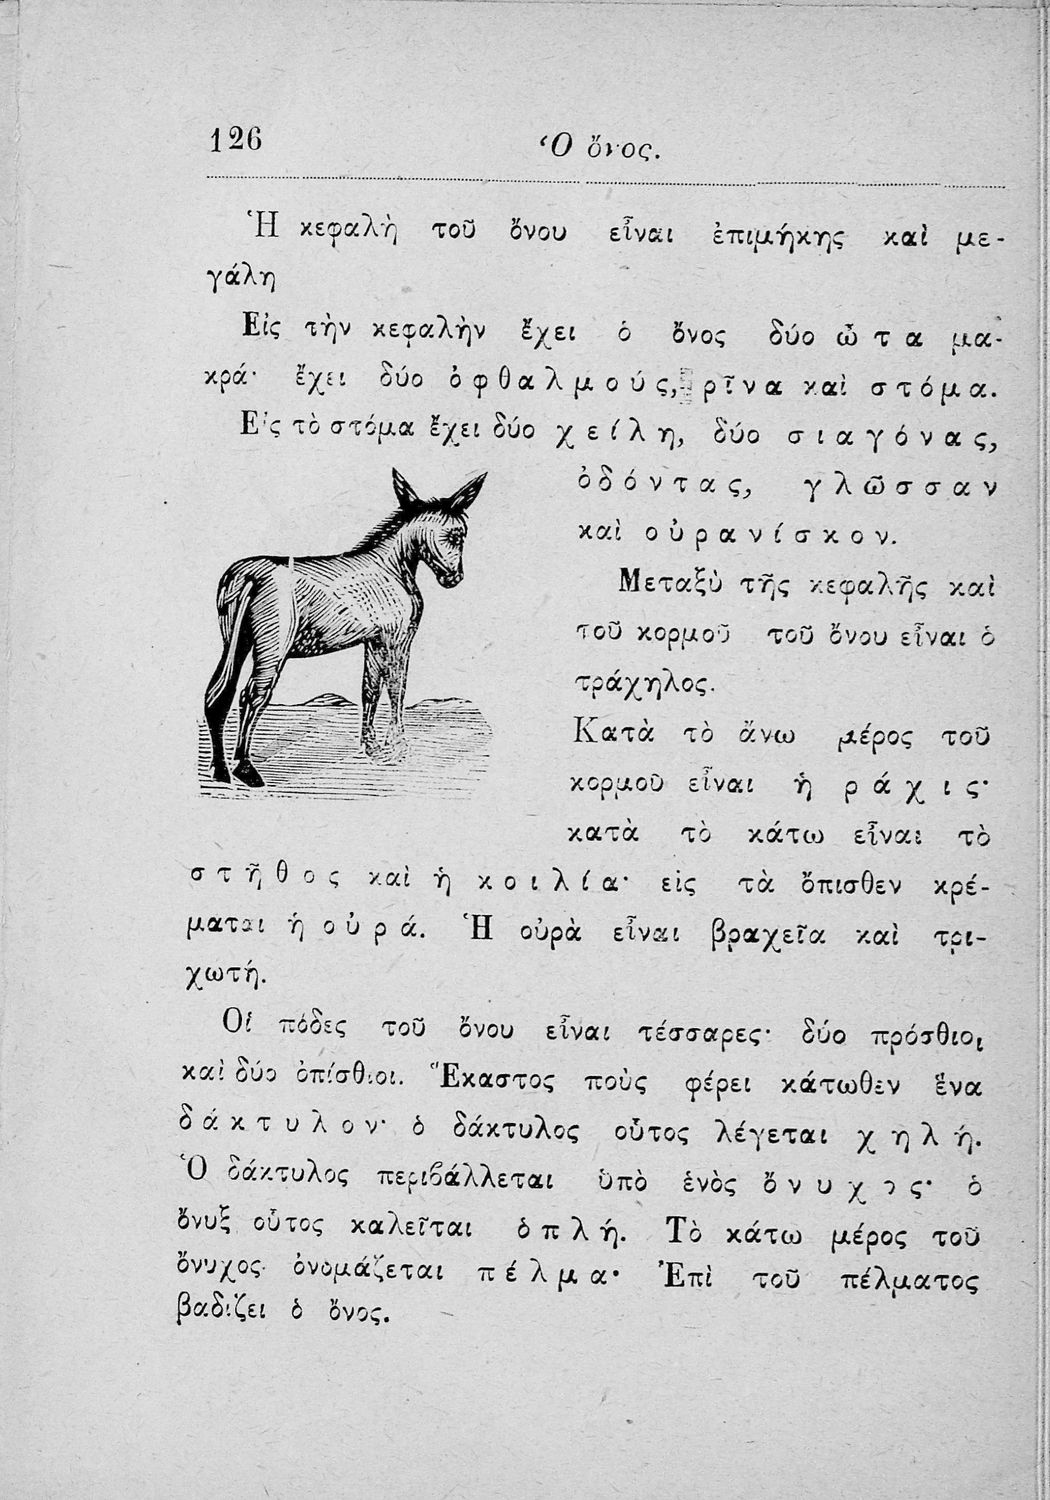 126
Ὁ ὄνος.
Ἡ κεφαλὴ τοῦ ὄνου εἶναι ἐπιμήκης καὶ με-
γάλη
Εἰς τὴν κεφαλὴν ἔχει ὁ ὄνος δύο ὦτα μα-
κρά· ἔχει δύο ὀφθαλμούς, ρῖνα καὶ στόμα.
Εἰς τὸ στόμα ἔχει δύο χείλη, δύο σιαγόνας,
ὀδόντας, γλῶσσαν
καὶ οὐρανίσκον.
Μεταξὺ τῆς κεφαλῆς καὶ
τοῦ κορμοῦ τοῦ ὄνου εἶναι ὁ
τράχηλος.
Κατὰ τὸ ἄνω μέρος τοῦ
κορμοῦ εἶναι ἡ ράχις·
κατὰ τὸ κάτω εἶναι τὸ
στῆθος καὶ ἡ κοιλία· εἰς τὰ ὄπισθεν κρέ-
μαται ἡ οὐρά. Ἡ οὐρὰ εἶναι βραχεῖα καὶ τρι-
χωτή.
Οἱ πόδες τοῦ ὄνου εἶναι τέσσαρες· δύο πρόσθιοι
καὶ δύο ὀπίσθιοι. Ἕκαστος ποὺς φέρει κάτωθεν ἕνα
δάκτυλον· ὁ δάκτυλος οὗτος λέγεται χηλή.
Ὁ δάκτυλος περιβάλλεται ὑπὸ ἑνὸς ὄνυχος· ὁ
ὄνυξ οὗτος καλεῖται ὁπλή. Τὸ κάτω μέρος τοῦ
ὄνυχος ὀνομάζεται πέλμα· Ἐπὶ τοῦ πέλματος
βαδίζει ὁ ὄνος.